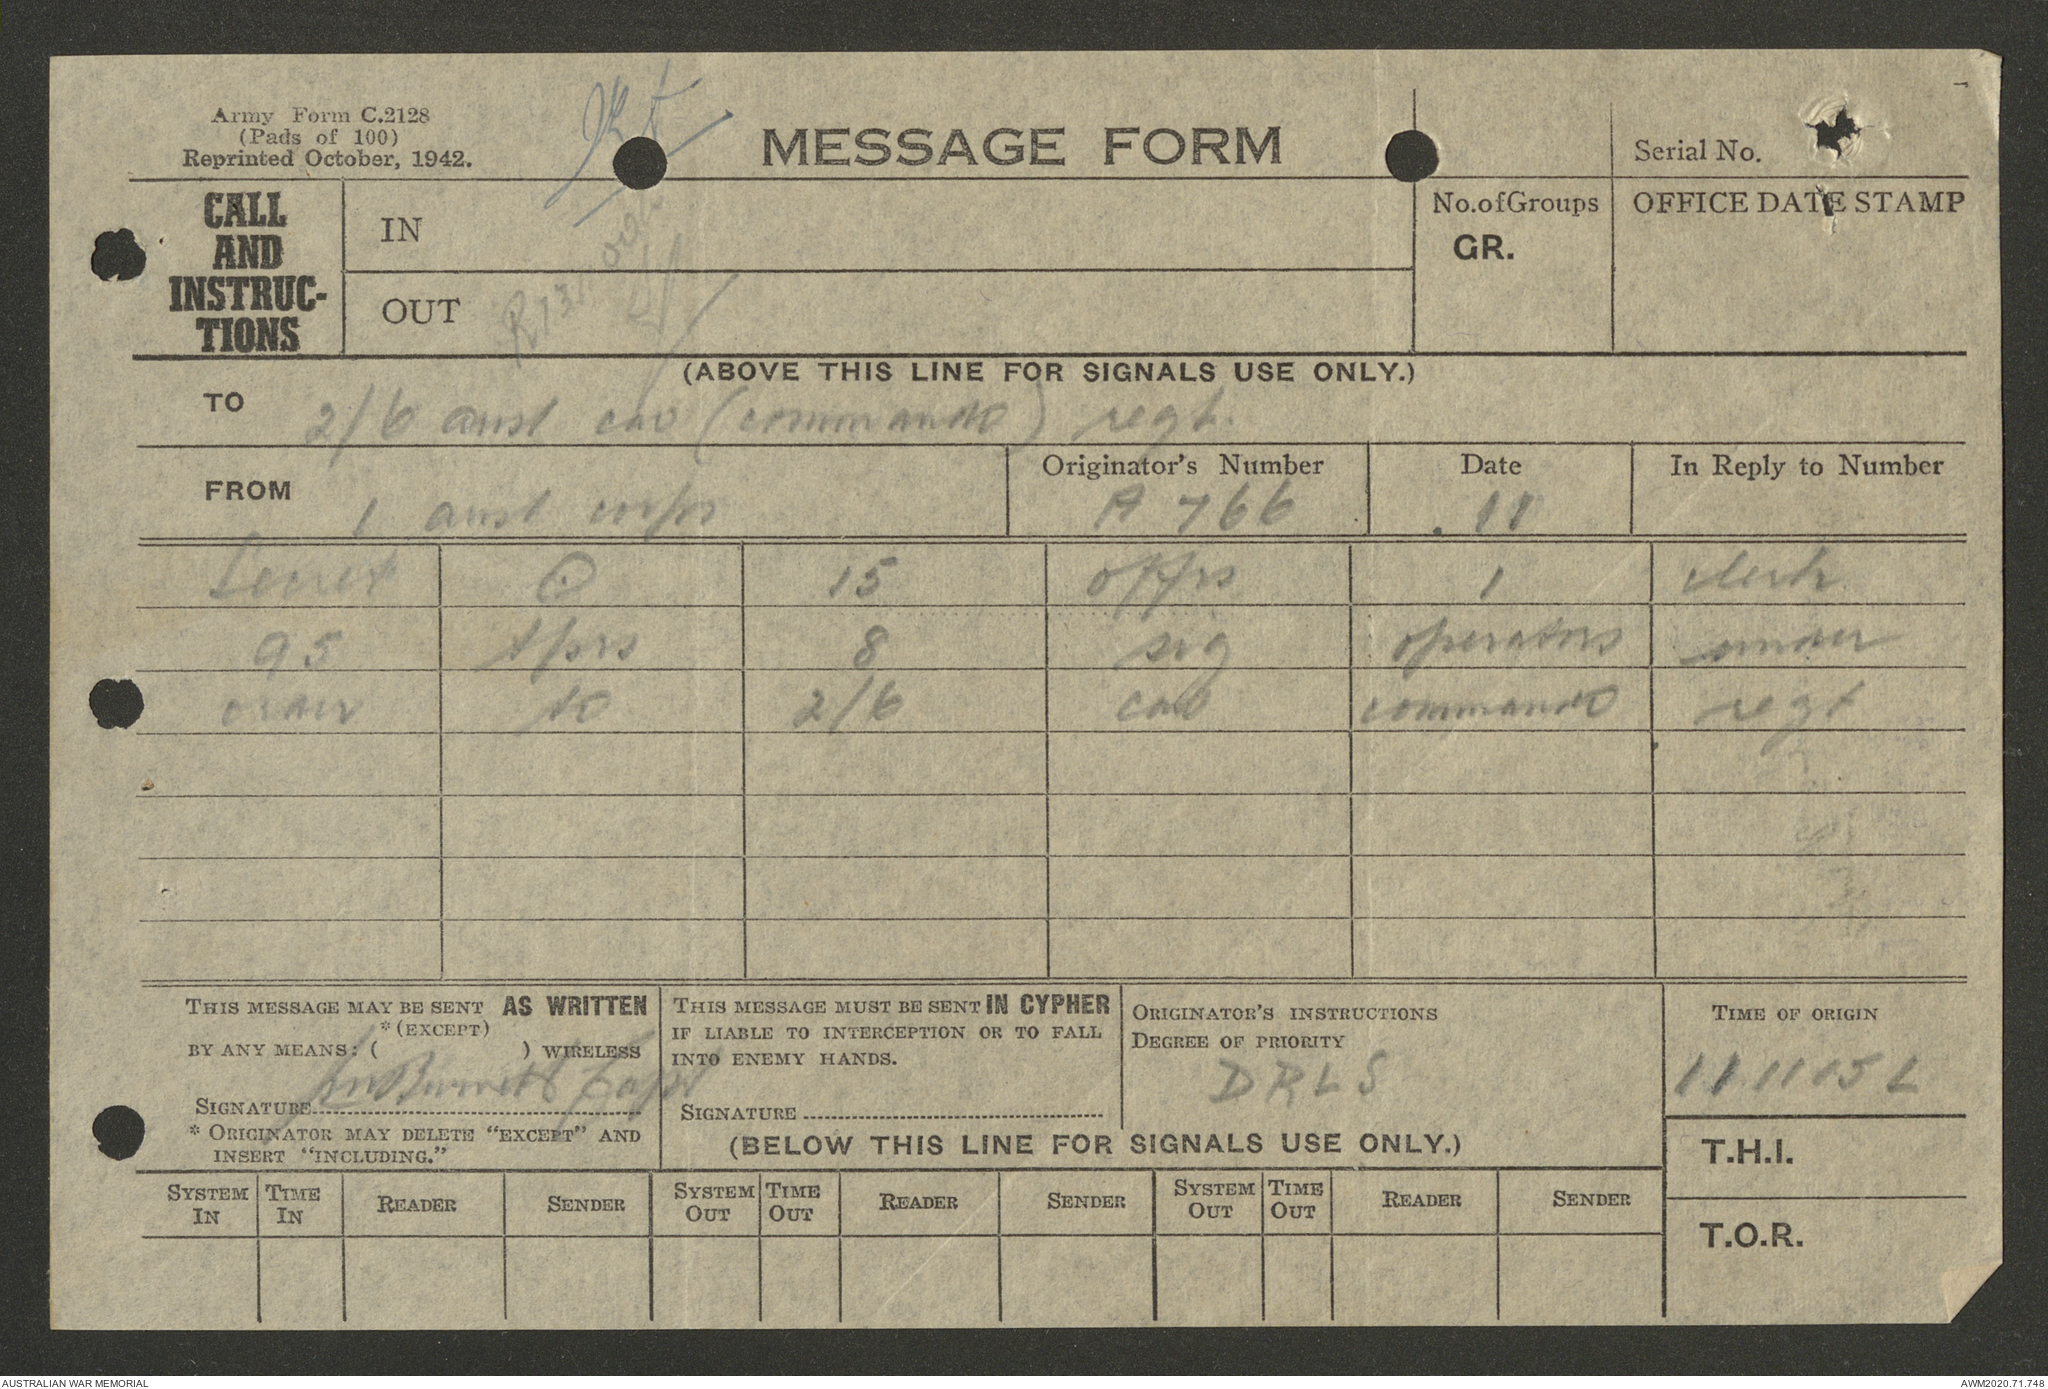 Army Form C.2128
(Pads of 100)
Reprinted October, 1942.
MESSAGE FORM
Serial No.
CALL
AND
INSTRUC-
TIONS
IN
OUT
No. of Groups
GR.
OFFICE DATE STAMP
(ABOVE THIS LINE FOR SIGNALS USE ONLY.)
TO 2/6 aust cav (commando) regt.
FROM 1 aust corps
Originator's Number A 766
Date 11
In Reply to Number
Secret ⊙ 15 offrs 1 clerk
95 tprs 8 sig operators under
order to 2/6 cav commando regt
THIS MESSAGE MAY BE SENT AS WRITTEN
*(EXCEPT)
BY ANY MEANS: ( ) WIRELESS
SIGNATURE Burnett Capt
* ORIGINATOR MAY DELETE "EXCEPT" AND
INSERT "INCLUDING."
THIS MESSAGE MUST BE SENT IN CYPHER
IF LIABLE TO INTERCEPTION OR TO FALL
INTO ENEMY HANDS.
SIGNATURE
ORIGINATOR'S INSTRUCTIONS
DEGREE OF PRIORITY
DRLS
TIME OF ORIGIN
111105L
(BELOW THIS LINE FOR SIGNALS USE ONLY.)
T.H.I.
T.O.R.
SYSTEM IN TIME IN READER SENDER SYSTEM OUT TIME OUT READER SENDER SYSTEM OUT TIME OUT READER SENDER
AUSTRALIAN WAR MEMORIAL
AWM2020.71.748